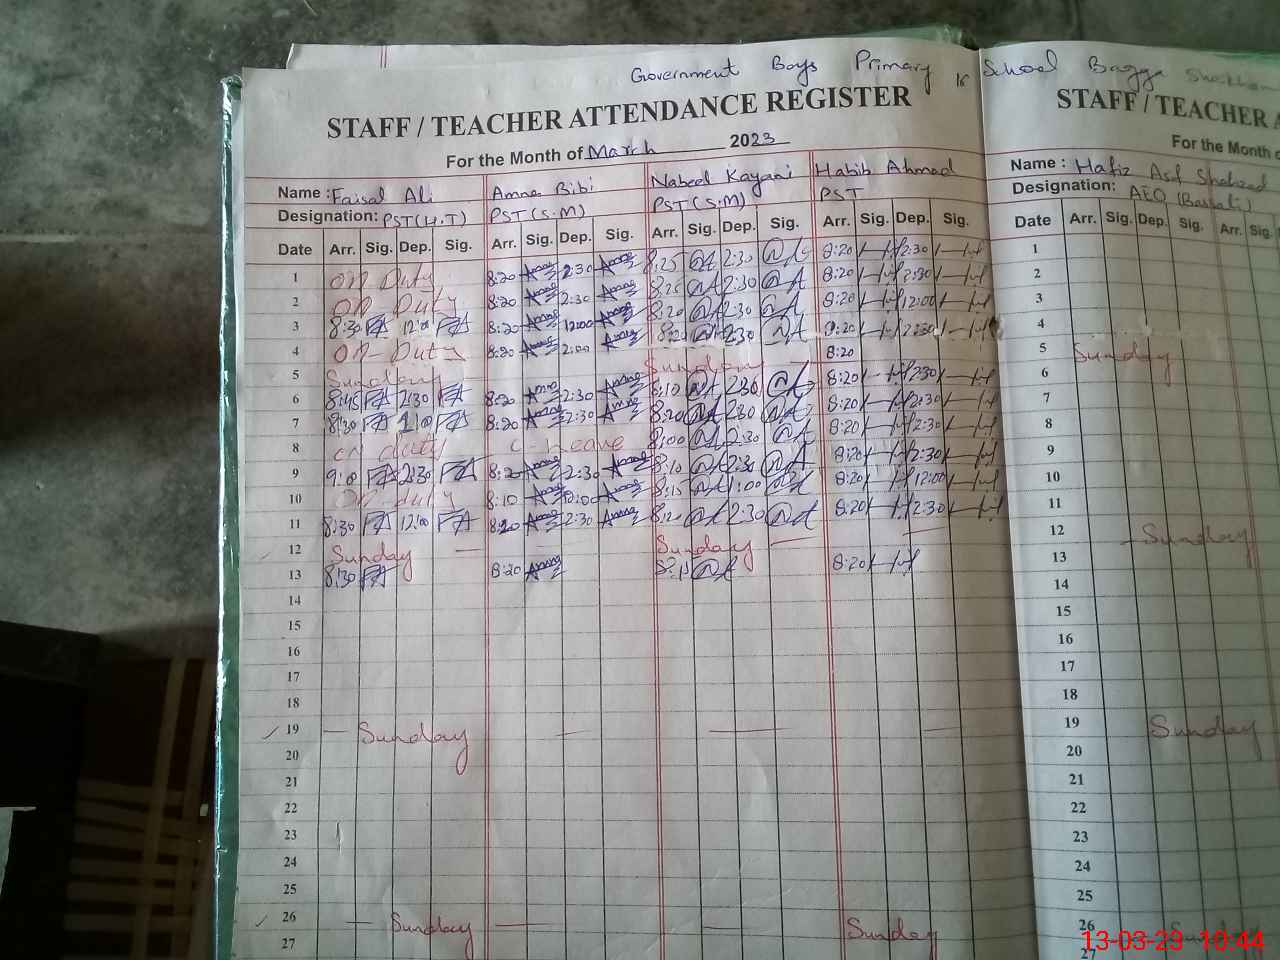 Government Boys Primary School Bagga Sheikhan
STAFF / TEACHER ATTENDANCE REGISTER
STAFF / TEACHER A
For the Month of March 2023
For the Month o
Name : Faisal Ali Amna Bibi Nabeel Kayani Habib Ahmad
Designation: PST(H.T) PST(S.M) PST(S.M) PST
Date Arr. Sig. Dep. Sig. Arr. Sig. Dep. Sig. Arr. Sig. Dep. Sig. Arr. Sig. Dep. Sig.
1 On Duty 8:20 2:30 8:25 2:30 8:20 2:30
2 On Duty 8:20 2:30 2:30 8:20 2:30
3 8:30 12:00 8:20 12:00 8:20 2:30 8:20 12:00
4 On-Duty 8:20 2:00 8:20 2:30 8:20 2:30
5 Sunday Sunday 8:20
6 8:45 2:30 8:20 2:30 8:10 2:30 8:20 2:30
7 8:30 1:00 8:20 2:30 8:20 2:30 8:20 2:30
8 on duty C-Leave 8:00 2:30 8:20 2:30
9 9:00 2:30 8:20 2:30 8:10 2:30 8:20 2:30
10 On-duty 8:10 8:15 1:00 8:20 12:00
11 8:30 12:00 8:20 2:30 8:20 2:30 8:20 2:30
12 Sunday Sunday
13 8:30 8:20 8:20
14
15
16
17
18
19 Sunday
20
21
22
23
24
25
26 Sunday Sunday
27
Name : Hafiz
Designation: AEO
Date Arr. Sig. Dep. Sig. Arr. Sig.
1
2
3
4
5 Sunday
6
7
8
9
10
11
12 Sunday
13
14
15
16
17
18
19 Sunday
20
21
22
23
24
25
26 Sunday
27
13-03-23 10:44